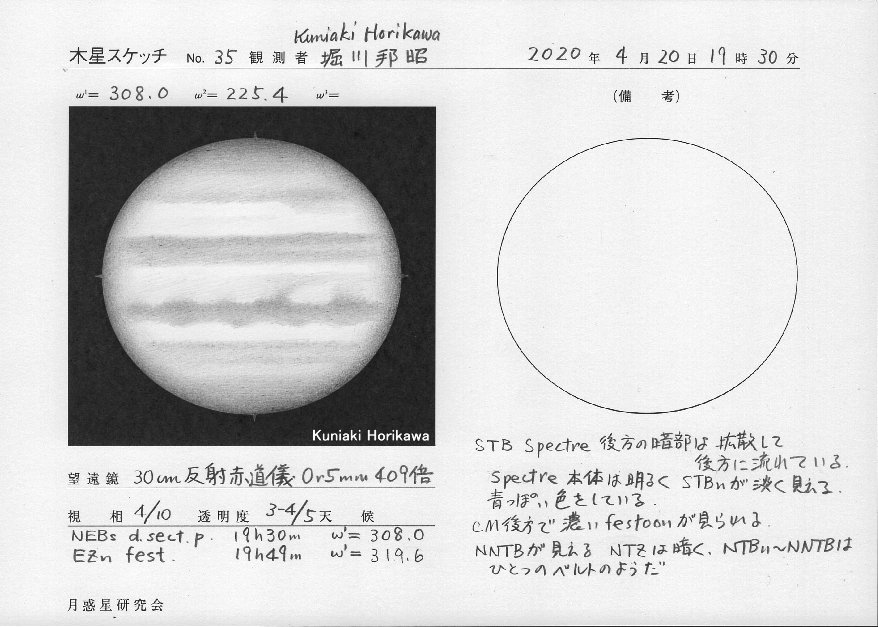 Kuniaki Horikawa
木星スケッチ No. 35 観測者 堀川邦昭 2020年 4月 20日 19時 30分
ω¹= 308.0 ω²= 225.4 ω³=
(備 考)
Kuniaki Horikawa
望遠鏡 30cm反射赤道儀 Or5mm 409倍
視 相 4/10 透明度 3-4/5 天 候
NEBs d.sect.p. 19h30m ω¹= 308.0
EZn fest. 19h49m ω¹= 319.6
月惑星研究会
STB Spectre 後方の暗部は拡散して
後方に流れている.
Spectre 本体は明るく STBnが淡く見える.
青っぽい色をしている.
CM後方で濃いfestoonが見られる.
NNTBが見える NTZは暗く、NTBn〜NNTBは
ひとつのベルトのようだ